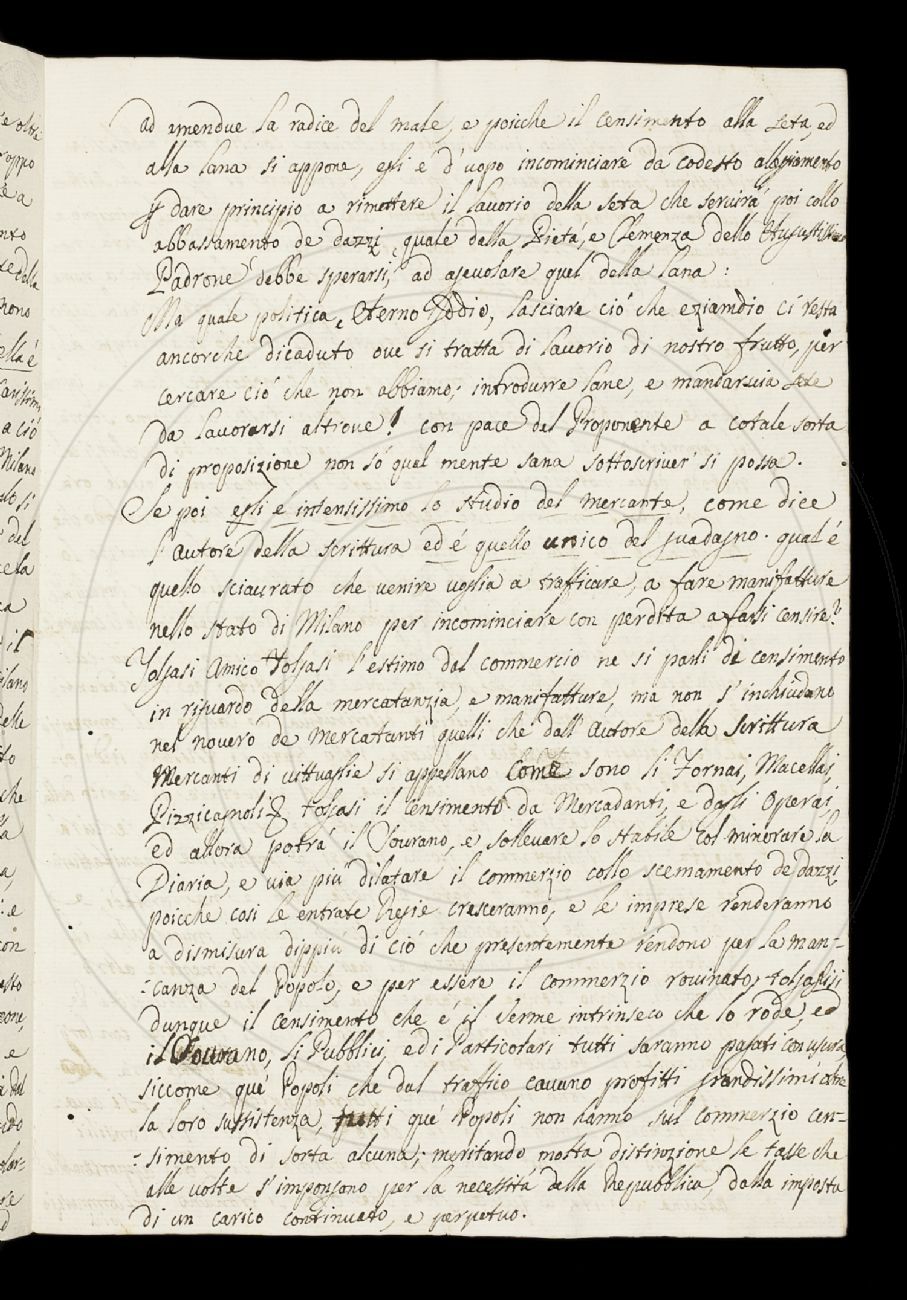 ad amendue la radice del male, e poiche il censimento alla seta, ed
alla lana si appone, egli e d'uopo incominciare da codesto alleggiamento
dare principio a rimettere il lavorio della seta che servirà poi collo
abbassamento de dazzi, quale della Pietà, e Clemenza dello Augustissimo
Padrone debbe sperarsi, ad agevolare quel della lana:
Ma quale politica, Eterno Iddio, lasciare ciò che eziamdio ci resta
ancorche dicaduto ove si tratta di lavorio di nostro frutto, per
cercare ciò che non abbiamo; introdurre lane, e mandarsuia sete
da lavorarsi altrove! con pace del Proponente a cotale sorta
di proposizione non sò qual mente sana sottoscriver si possa.
Se poi egli é intensissimo lo studio del mercante, come dice
l'autore della scrittura ed é quello unico del guadagno. qual é
quello sciaurato che venire voglia a trafficare, a fare manifatture
nello stato di Milano per incominciare con perdita a farsi censire?
Tolgasi Amico Tolgasi l'estimo dal commercio ne si parli di censimento
in riguardo della mercatanzia, e manifatture, ma non s'inchiudano
nel novero de Mercatanti quelli che dall'autore della scrittura
Mercanti di vittuaglie si appellano Come sono li Fornai, Macellaj,
Pizzicagnoli & tolgasi il censimento da Mercadanti, e dagli Operai,
ed allora potrà il Sovrano, e sollevare lo stabile col minorare la
Diaria, e via più dilatare il commerzio collo scemamento de dazzi
poicche cosi le entrate Regie cresceranno, e le imprese renderanno
a dismisura dippiù di ciò che presentemente rendono per la man-
-canza del Popolo, e per essere il commerzio rovinato, tolgasisi
dunque il censimento che é il Verme intrinseco che lo rode, ed
il Sovrano, li Pubblici, ed i Particolari tutti saranno pagati con usura,
siccome que' Popoli che dal traffico cavano profitti grandissimi oltre
la loro sussistenza, tutti que' Popoli non hanno sul commerzio cen-
-simento di sorta alcuna; meritando molta distinzione le tasse che
alle volte s'impongono per la necessità della Repubblica, dalla imposta
di un carico continuato, e perpetuo.